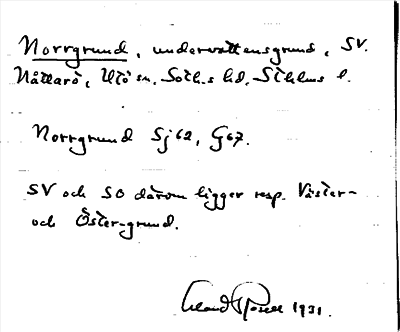 Norrgrund, undervattensgrund, SV.
Nåttarö, Utö sn, Soth.s hd, Sthlms l.
Norrgrund Sj 62, G 67.
SV och SO därom ligger resp. Väster-
och Öster-grund.
1931.